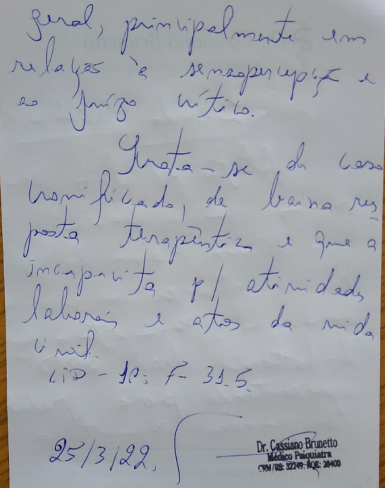 geral, principalmente em
relação à sensopercepção e
ao juízo crítico.
Trata-se de caso
cronificado, de baixa res
posta terapêutica e que a
incapacita p/ atividades
laborais e atos da vida
civil.
CID-10: F-31.5.
25/3/22.
Dr. Cassiano Brunetto
Médico Psiquiatra
CRM/RS: 32249. RQE: 28400